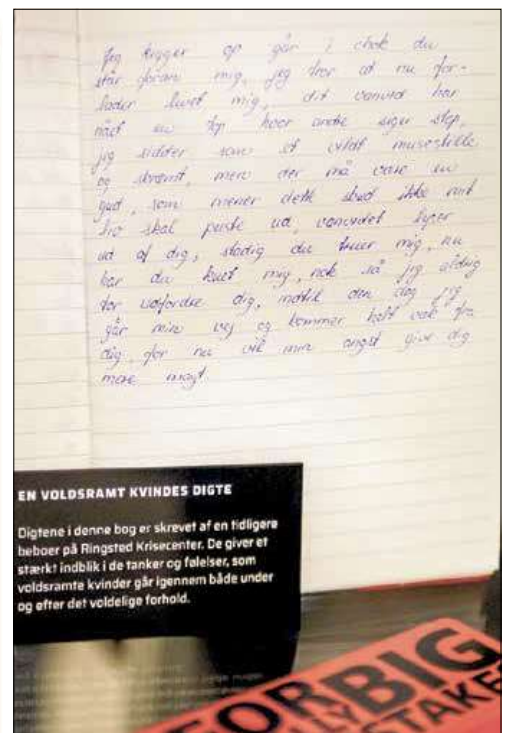 Jeg kigger op går i chok du
står foran mig, jeg tror at nu for-
lader livet mig, dit vanvid har
nået en top hvor andre siger stop,
jeg sidder som et vildt musestille
og skræmt, men der må være en
gud, som mener dette sted ikke mit
liv skal puste ud, vanvidet lyser
ud af dig, stadig du truer mig, nu
har du kuet mig, nok så jeg aldrig
tør udfordre dig, indtil den dag jeg
går min vej og kommer helt væk fra
dig, for nu vil min angst give dig
mere magt.
EN VOLDSRAMT KVINDES DIGTE
Digtene i denne bog er skrevet af en tidligere
beboer på Ringsted Krisecenter. De giver et
stærkt indblik i de tanker og følelser, som
voldsramte kvinder går igennem både under
og efter det voldelige forhold.
FOR BIG